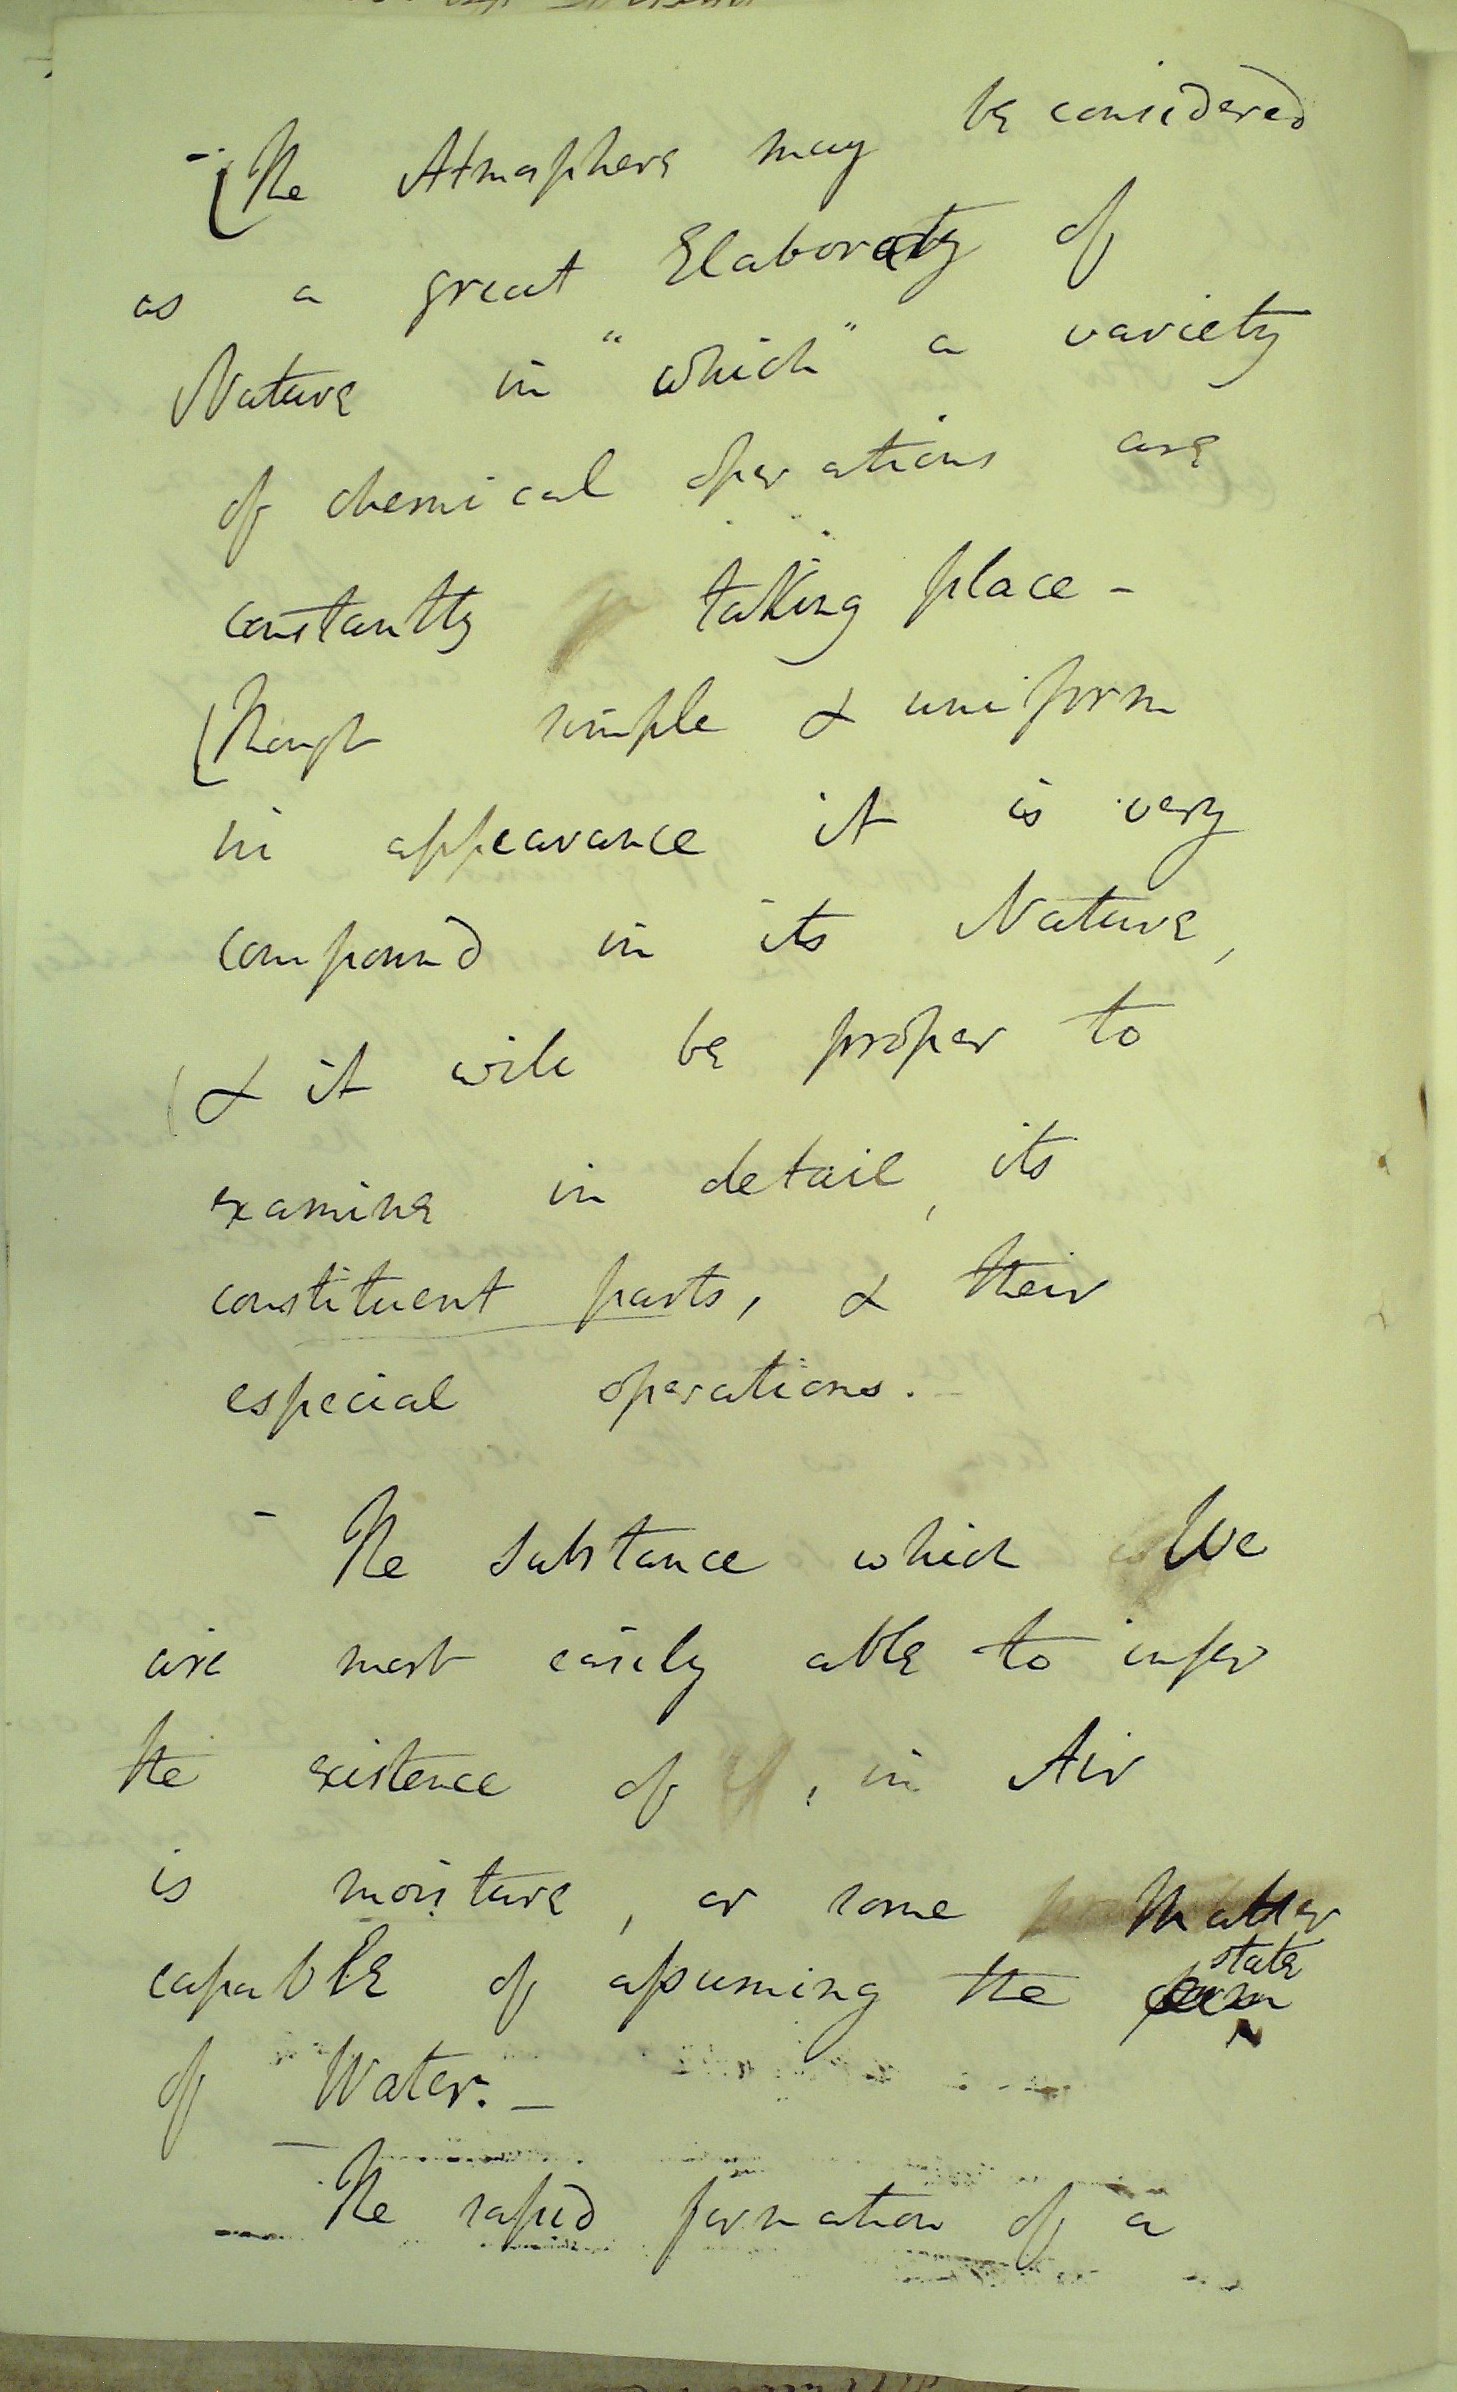 - The Atmosphere may be considered
as a great Elaboraty of
Nature in "which" a variety
of chemical operations are
constantly taking place -
Though simple & uniform
in appearance it is very
compound in its Nature,
& it will be proper to
examine in detail, its
constituent parts, & their
especial operations.
- The substance which We
are most easily able to infer
the existence of, in Air
is moisture, or some Matter
capable of assuming the form state
of Water. -
- The rapid formation of a